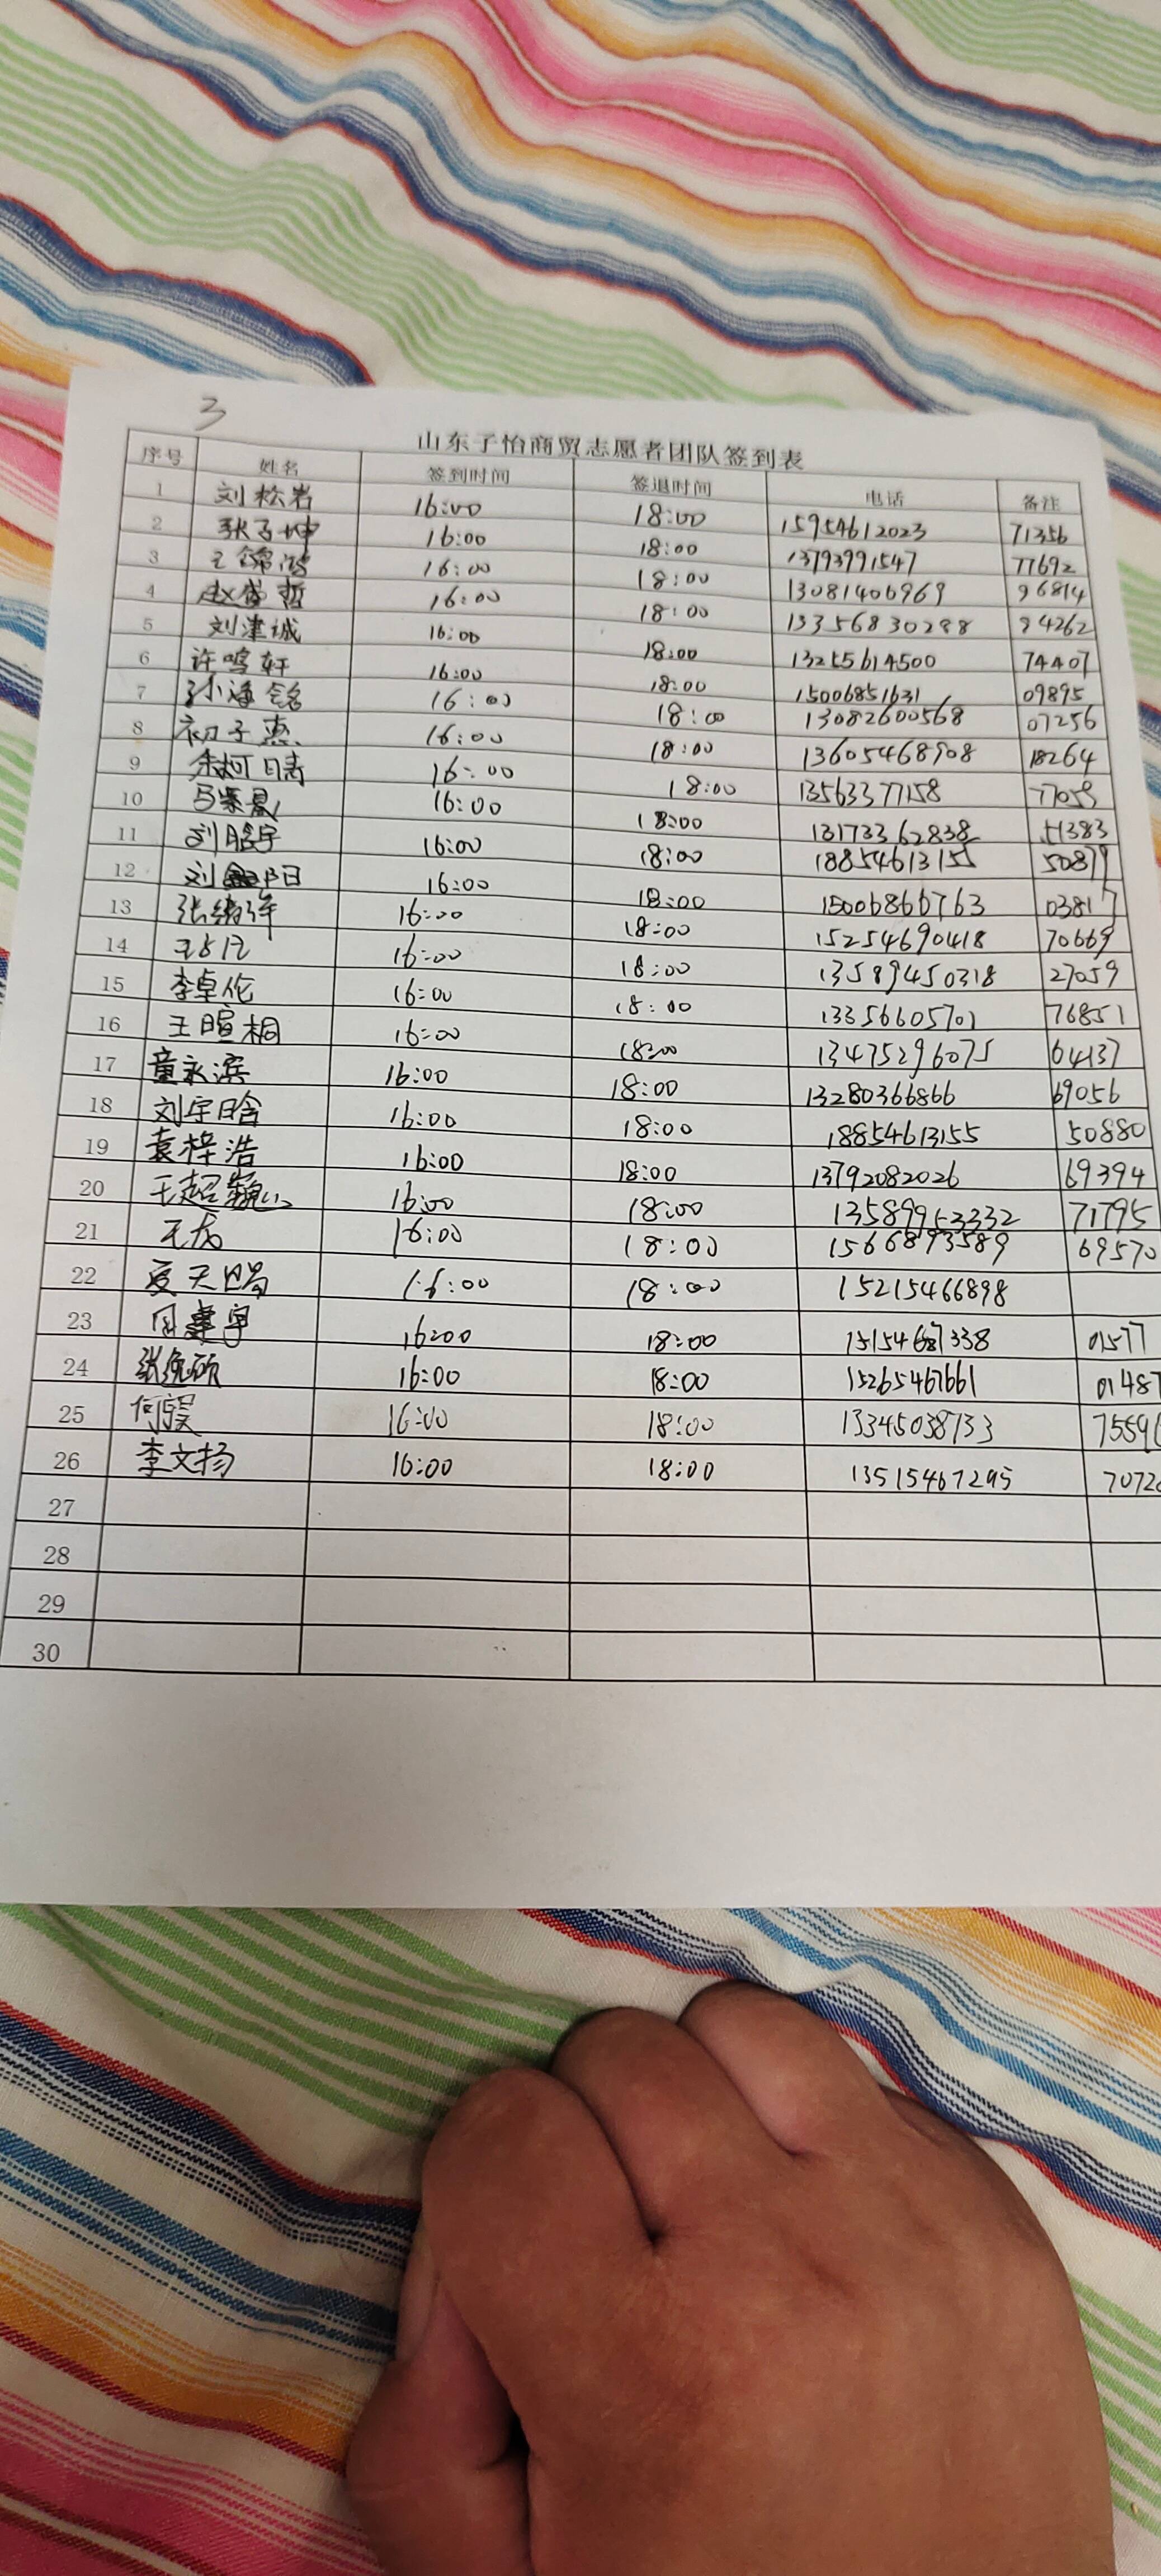 3
山东子怡商贸志愿者团队签到表
序号 姓名 签到时间 签退时间 电话 备注
1 刘松岩 16:00 18:00 15954612023 71356
2 张子坤 16:00 18:00 13793991547 77692
3 王锦鸿 16:00 18:00 13081406969 96814
4 赵盛哲 16:00 18:00 13356830298 94262
5 刘津诚 16:00 18:00 13255614500 74407
6 许鸣轩 16:00 18:00 15006851631 09895
7 孙海铭 16:00 18:00 13082600568 07256
8 初子惠 16:00 18:00 13605468908 18264
9 16:00 18:00 13563377158 77059
10 16:00 18:00 13173362838 51383
11 刘晗宇 16:00 18:00 18854613155 50879
12 刘 阳 16:00 18:00 15006866763 03817
13 张绪祥 16:00 18:00 15254690418 70669
14 16:00 18:00 13589450318 27059
15 李卓伦 16:00 18:00 13356605701 76851
16 王暄桐 16:00 18:00 13475296075 64137
17 童永滨 16:00 18:00 13280366866 69056
18 刘宇晗 16:00 18:00 18854613155 50880
19 袁梓浩 16:00 18:00 13792082026 69394
20 王超巍 16:00 18:00 13589953332 71795
21 16:00 18:00 15668973589 69570
22 夏天 16:00 18:00 15215466898
23 周建宇 1600 18:00 15154687338 01577
24 16:00 18:00 15265467661 01487
25 何昊 16:00 18:00 13345038733 7559
26 李文扬 16:00 18:00 13515467295 7072
27
28
29
30